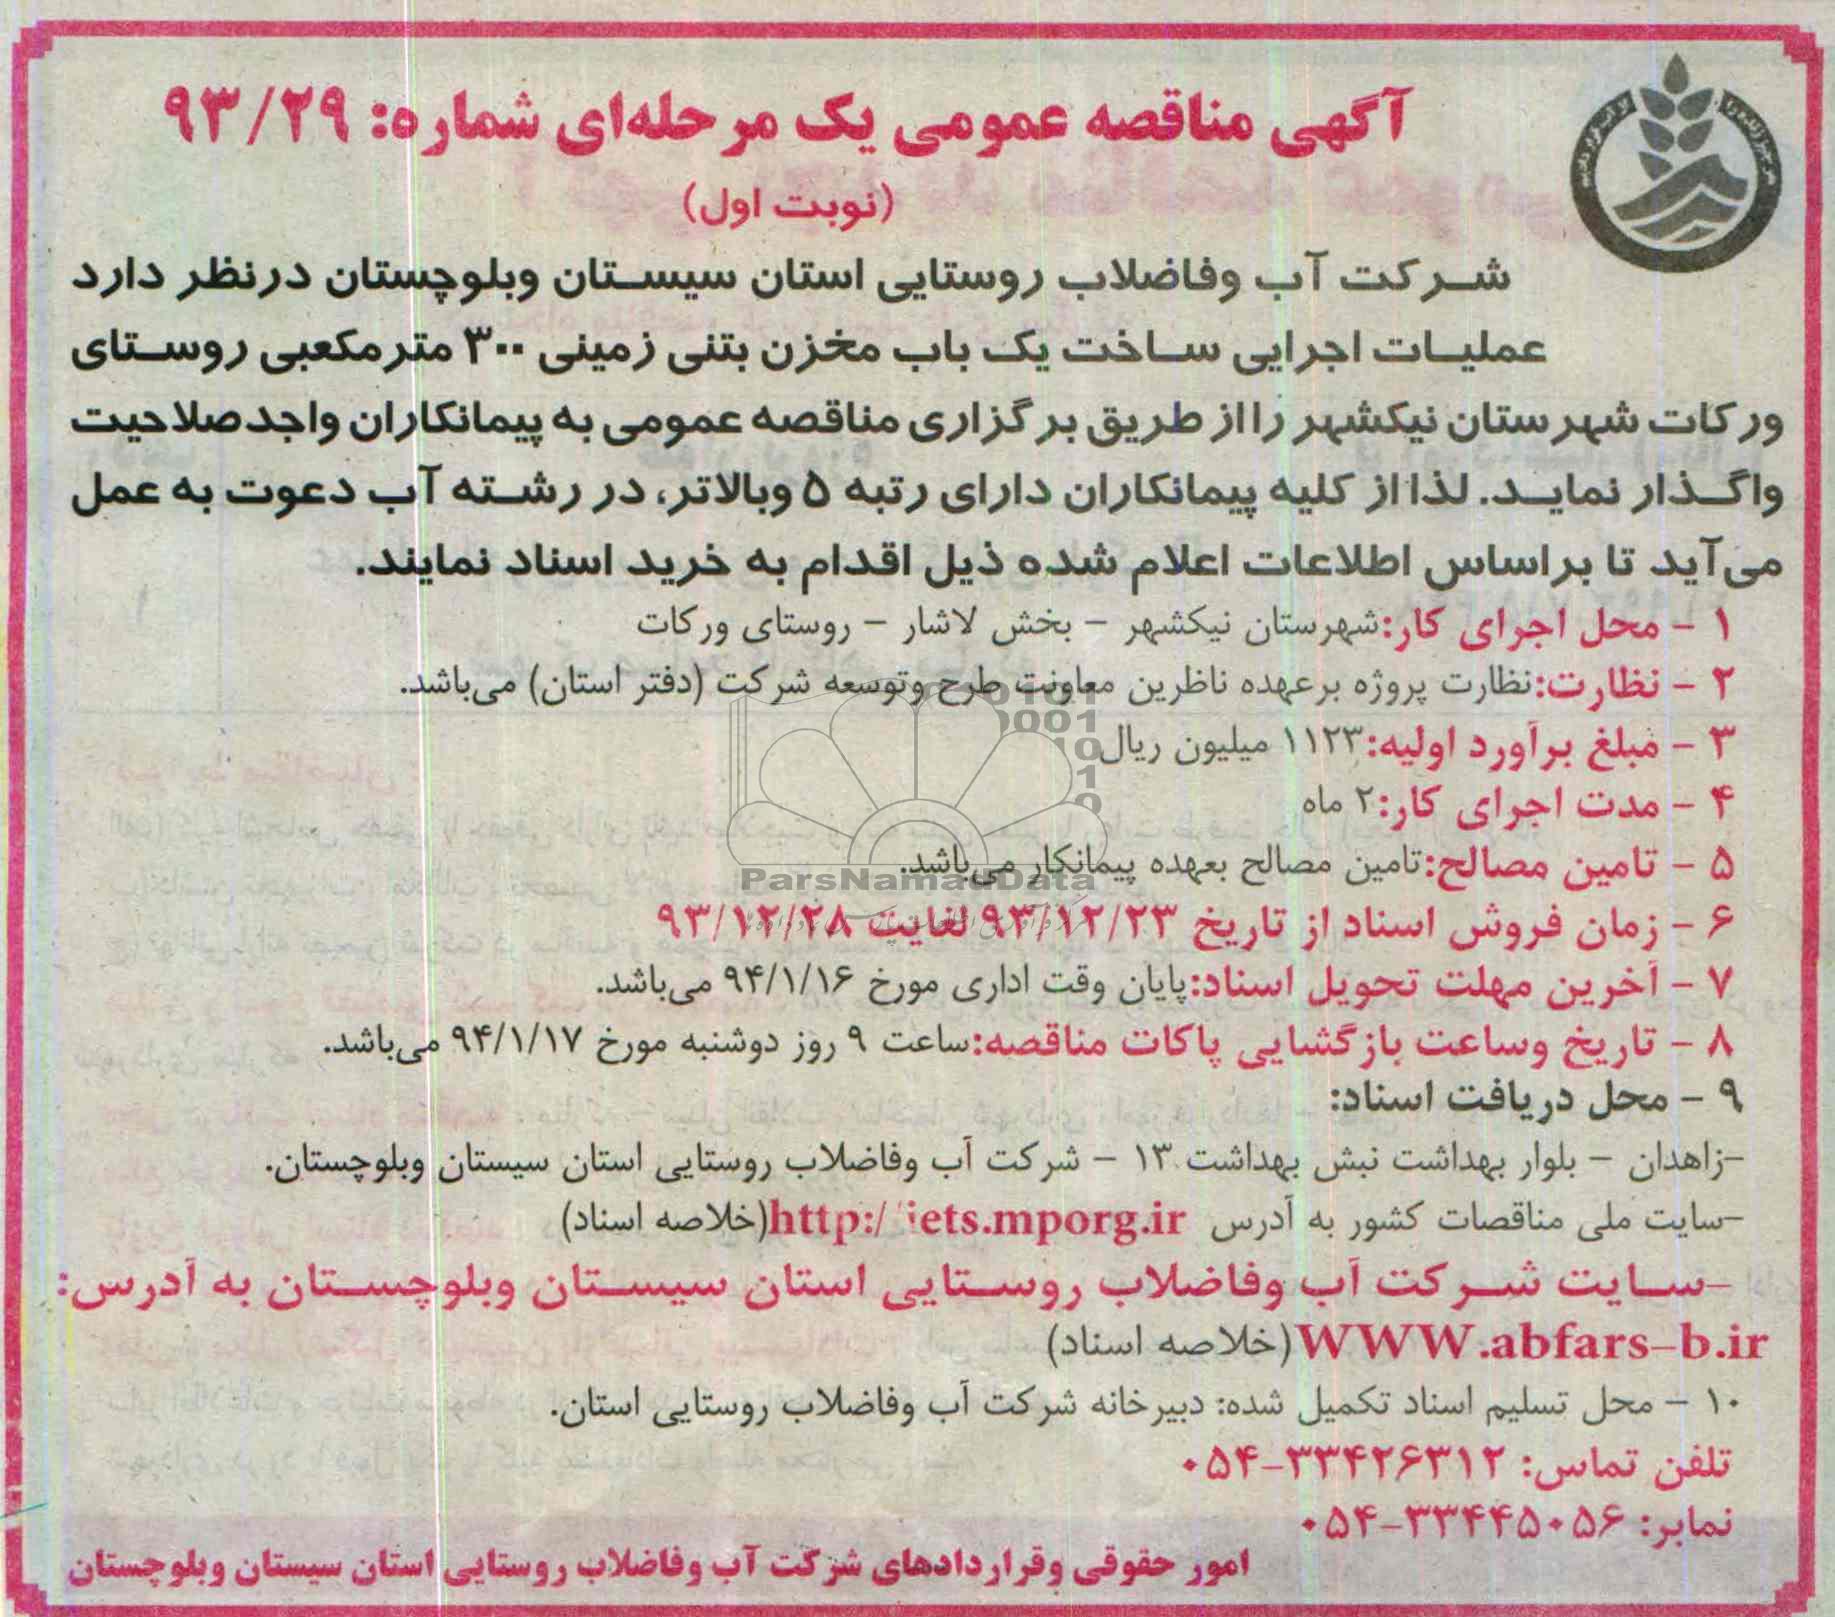 آگهی مناقصه عمومی یک مرحله‌ای شماره: ۹۳/۲۹
(نوبت اول)
شرکت آب وفاضلاب روستایی استان سیستان وبلوچستان درنظر دارد
عملیات اجرایی ساخت یک باب مخزن بتنی زمینی ۳۰۰ مترمکعبی روستای
ورکات شهرستان نیکشهر را از طریق برگزاری مناقصه عمومی به پیمانکاران واجدصلاحیت
واگذار نماید. لذا از کلیه پیمانکاران دارای رتبه ۵ وبالاتر، در رشته آب دعوت به عمل
می‌آید تا براساس اطلاعات اعلام شده ذیل اقدام به خرید اسناد نمایند.
۱ - محل اجرای کار:شهرستان نیکشهر - بخش لاشار - روستای ورکات
۲ - نظارت:نظارت پروژه برعهده ناظرین معاونت طرح وتوسعه شرکت (دفتر استان) می‌باشد.
۳ - مبلغ برآورد اولیه:۱۱۲۳ میلیون ریال
۴ - مدت اجرای کار:۲ ماه
۵ - تامین مصالح:تامین مصالح بعهده پیمانکار می‌باشد.
ParsNamadData
۶ - زمان فروش اسناد از تاریخ ۹۳/۱۲/۲۳ لغایت ۹۳/۱۲/۲۸
۷ - آخرین مهلت تحویل اسناد:پایان وقت اداری مورخ ۹۴/۱/۱۶ می‌باشد.
۸ - تاریخ وساعت بازگشایی پاکات مناقصه:ساعت ۹ روز دوشنبه مورخ ۹۴/۱/۱۷ می‌باشد.
۹ - محل دریافت اسناد:
-زاهدان - بلوار بهداشت نبش بهداشت ۱۳ - شرکت آب وفاضلاب روستایی استان سیستان وبلوچستان.
-سایت ملی مناقصات کشور به آدرس http://iets.mporg.ir(خلاصه اسناد)
-سایت شرکت آب وفاضلاب روستایی استان سیستان وبلوچستان به آدرس:
WWW.abfars-b.ir(خلاصه اسناد)
۱۰ - محل تسلیم اسناد تکمیل شده: دبیرخانه شرکت آب وفاضلاب روستایی استان.
تلفن تماس: ۳۳۴۲۶۳۱۲-۰۵۴
نمابر: ۳۳۴۴۵۰۵۶-۰۵۴
امور حقوقی وقراردادهای شرکت آب وفاضلاب روستایی استان سیستان وبلوچستان